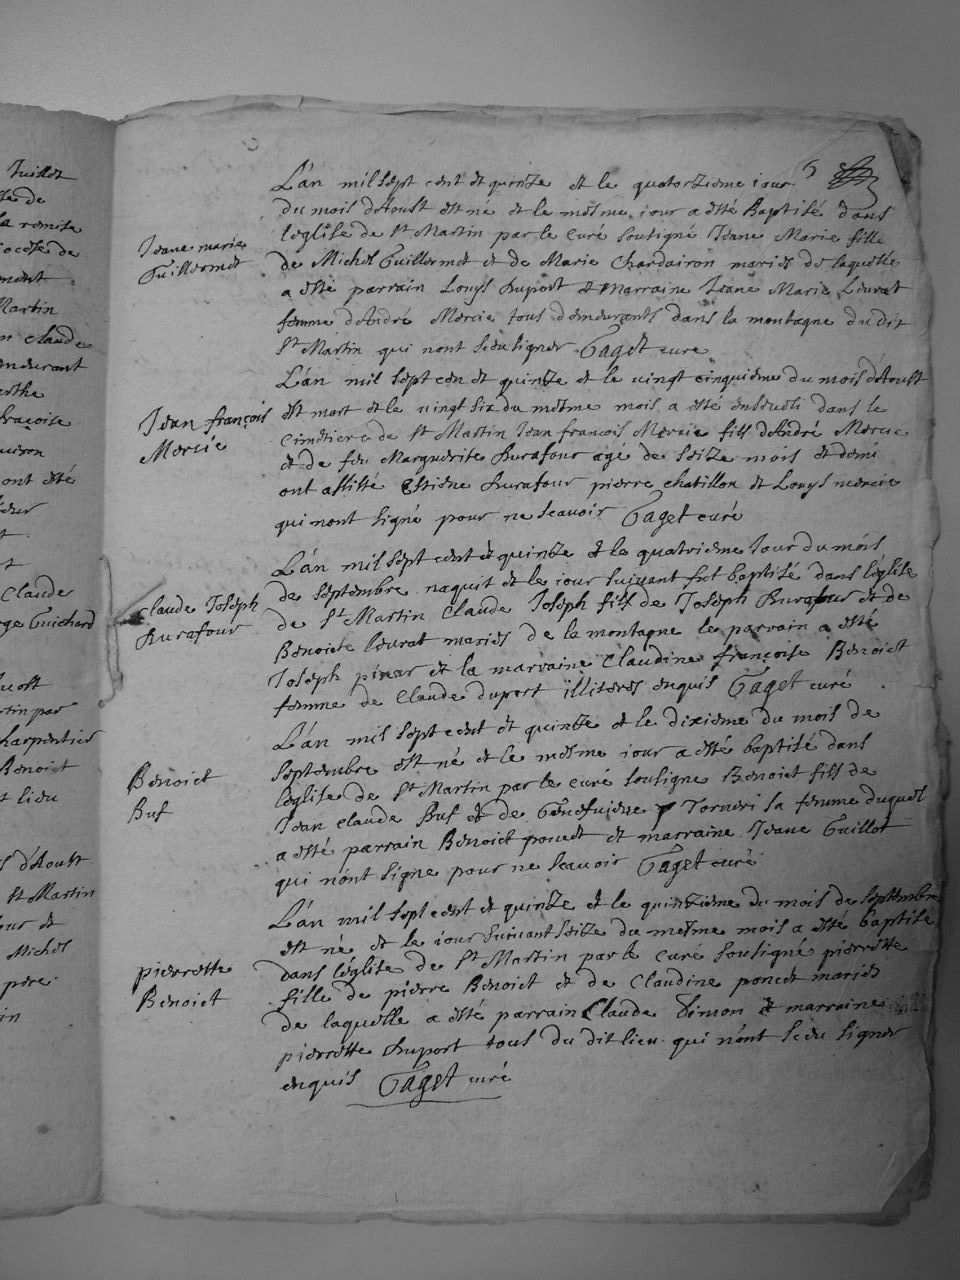 Juillet
de
la remise
ocese de
Martin
n claude
emeurant
francoise
ont esté
Claude
rge Guichard
tin par
harpentier
Benoict
t lieu
s d'Aoust
St Martin
our et
Michel
pere
in
6
L'an mil sept cent et quinze et le quatorzieme jour
du mois d'Aoust est né et le mesme jour a esté Baptisé dans
l'eglise de St Martin par le curé sousigné Jeane Marie fille
Jeane marie
Guillermet
de Michel Guillermet et de Marie Chardairon mariés de laquelle
a esté parrain Louys Duport et marraine Jeane Marie Levrat
femme d'André Mercie tous demeurants dans la montagne du dit
St Martin qui nont sceu signer Gaget curé
L'an mil sept cen et quinze et le vingt cinquieme du mois d'Aoust
Jean françois
Mercie
est mort et le vingt six du mesme mois a esté enseveli dans le
cimetiere de St Martin Jean francois Mercie fils d'André Mercie
et de feu Marguerite Durafour agé de seize mois et demi
ont assisté Estiene Durafour pierre chatillon et Louys mercie
qui nont signé pour ne scavoir Gaget curé
L'an mil sept cent et quinze et le quatrieme jour du mois
de septembre naquit et le jour suivant fut baptisé dans l'église
Claude Joseph
Durafour
de St Martin Claude Joseph fils de Joseph Durafour et de
Benoicte levrat mariés de la montagne le parrain a esté
Joseph pinar et la marraine Claudine françoise Benoict
femme de Claude duport illiteres enquis Gaget curé
L'an mil sept cent et quinze et le dixieme du mois de
septembre est né et le mesme jour a esté baptisé dans
Benoict
Buf
l'eglise de St Martin par le curé sousigné Benoict fils de
Jean Claude Buf et de Genefuiene Torneri sa femme duquel
a esté parrain Benoict poncet et marraine Jeane Guillot
qui nont signe pour ne scavoir Gaget curé
L'an mil sept cent et quinze et le quinzieme du mois de septembre
est né et le jour suivant seize du mesme mois a esté baptisé
pierrette
Benoict
dans l'église de St Martin par le curé sousigné pierrette
fille de pierre Benoict et de Claudine poncet mariés
de laquelle a esté parrain Claude Simon et marraine
pierrette Duport tous du dit lieu qui n'ont sceu signer
enquis Gaget curé